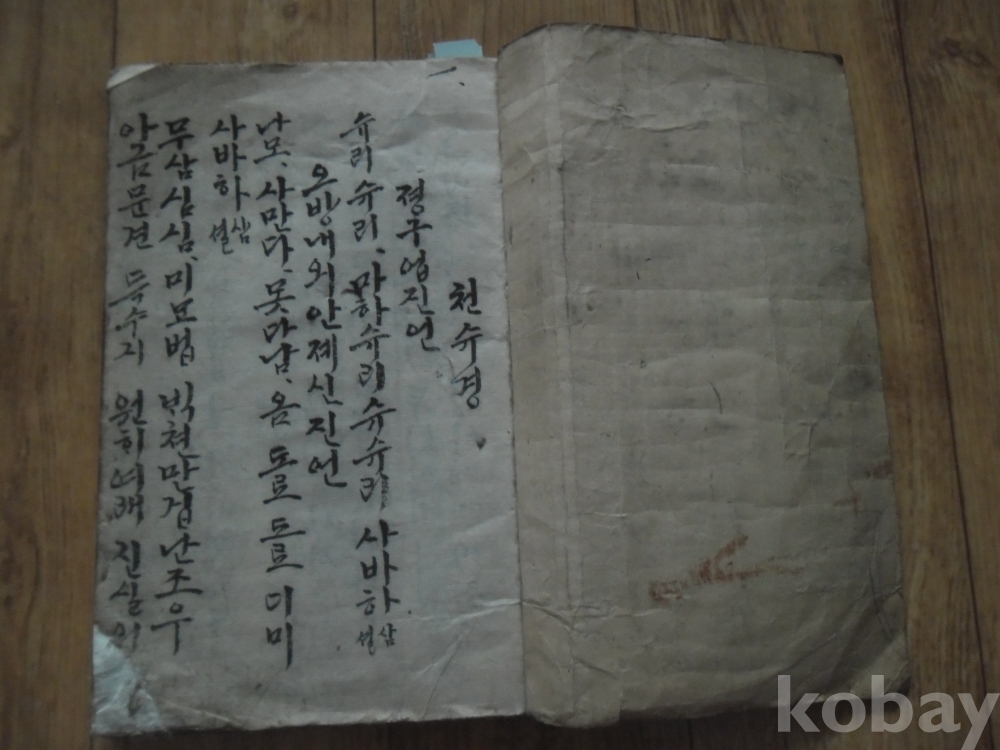 천슈경
졍구업진언
슈리 슈리, 마하슈리 슈슈리 사바하 삼셜
오방내외안졔신진언
나모, 사만다, 못다남, 옴 도로 도로 디미
사바하 삼셜
무삼심심, 미묘법 빅쳔만겁난조우
아금문견 득수지 원히여래 진실의
kobay